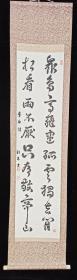 眾鳥高飛盡孤雲獨去閒
相看兩不厭只有敬亭山